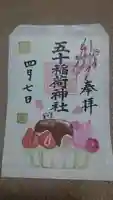 奉拝
五十稲荷神社
四月七日